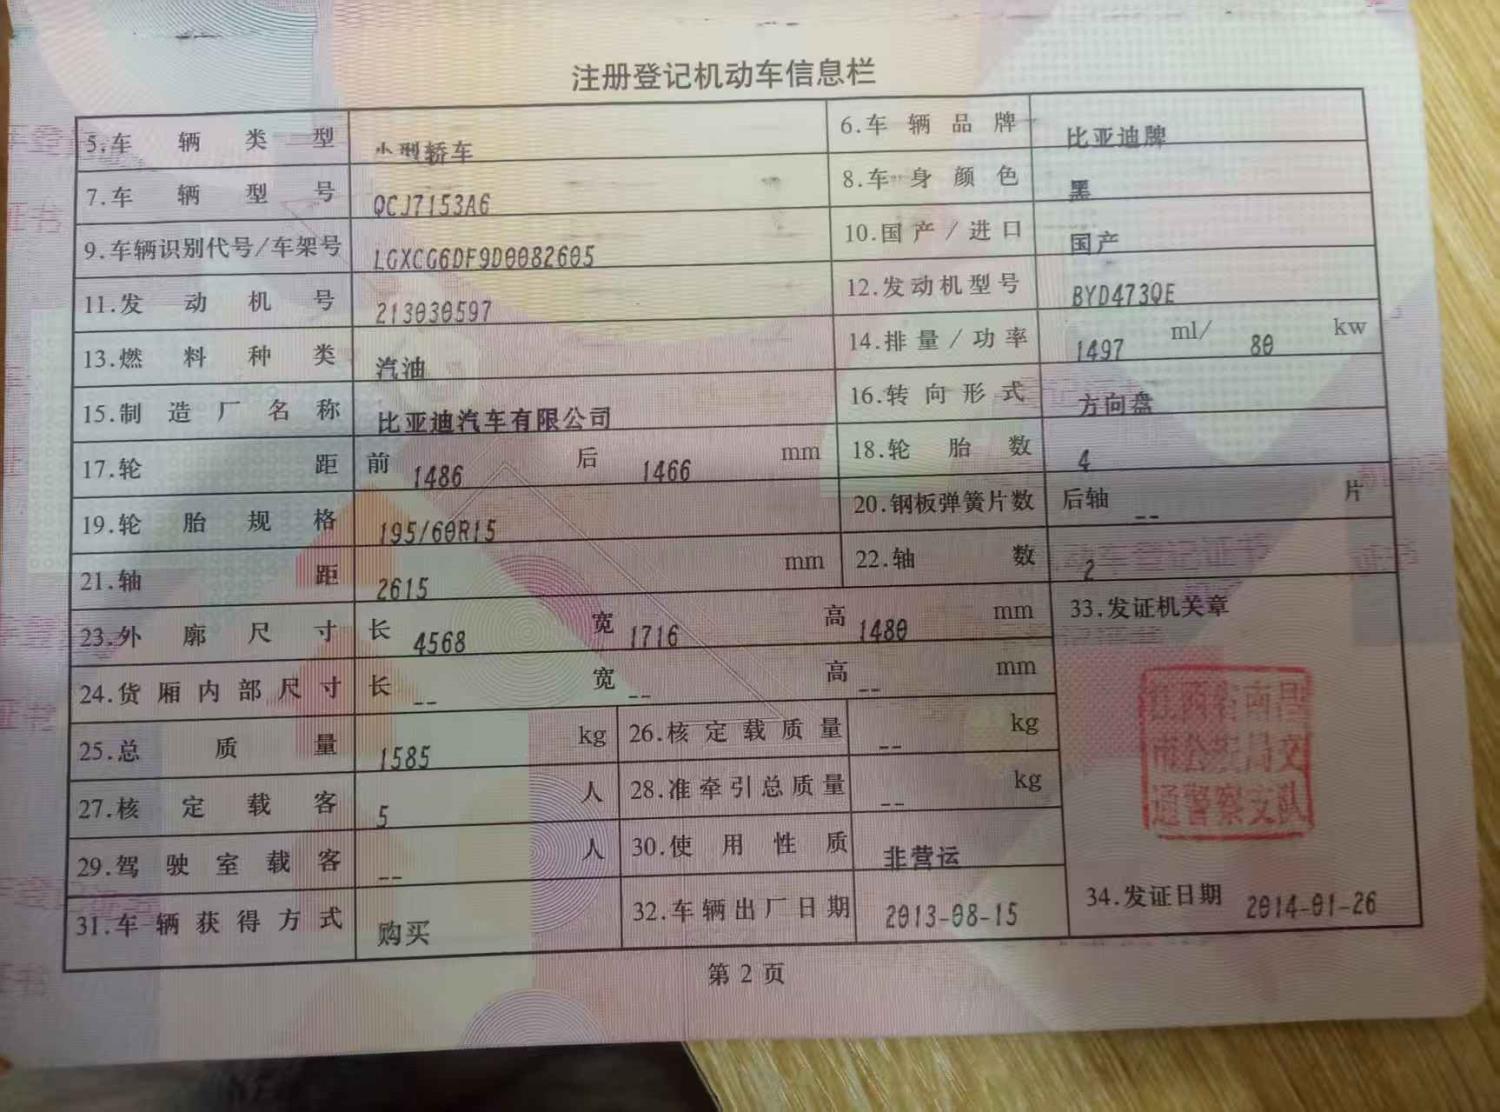 注册登记机动车信息栏
5.车辆类型 小型轿车 6.车辆品牌 比亚迪牌
7.车辆型号 QCJ7153A6 8.车身颜色 黑
9.车辆识别代号/车架号 LGXCG6DF9D0082605 10.国产/进口 国产
11.发动机号 213030597 12.发动机型号 BYD473QE
13.燃料种类 汽油 14.排量/功率 1497 ml/ 80 kw
15.制造厂名称 比亚迪汽车有限公司 16.转向形式 方向盘
17.轮距 前 1486 后 1466 mm 18.轮胎数 4
19.轮胎规格 195/60R15 20.钢板弹簧片数 后轴 -- 片
21.轴距 2615 mm 22.轴数 2
23.外廓尺寸 长 4568 宽 1716 高 1480 mm 33.发证机关章
24.货厢内部尺寸 长 -- 宽 -- 高 -- mm
江西省南昌
市公安局交
通警察支队
25.总质量 1585 kg 26.核定载质量 -- kg
27.核定载客 5 人 28.准牵引总质量 -- kg
29.驾驶室载客 -- 人 30.使用性质 非营运
31.车辆获得方式 购买 32.车辆出厂日期 2013-08-15 34.发证日期 2014-01-26
第2页